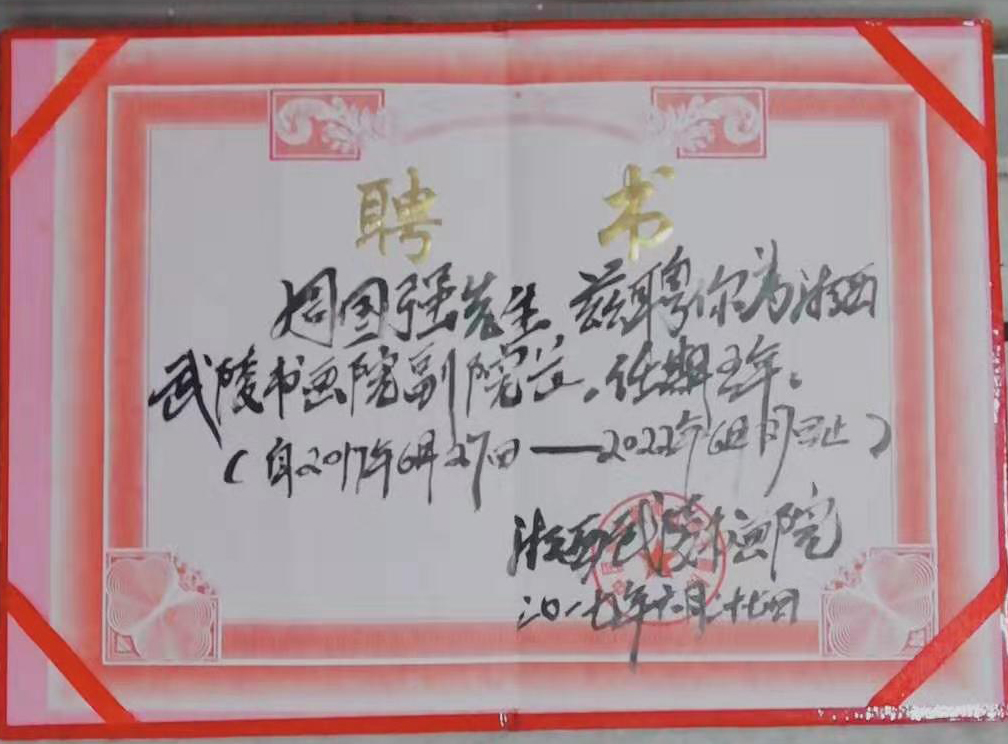 聘书
周国强先生 兹聘你为湘西
武陵书画院副院长。任期五年。
（自2017年6月27日——2022年6月 日止）
湘西武陵书画院
二〇一七年六月二十七日